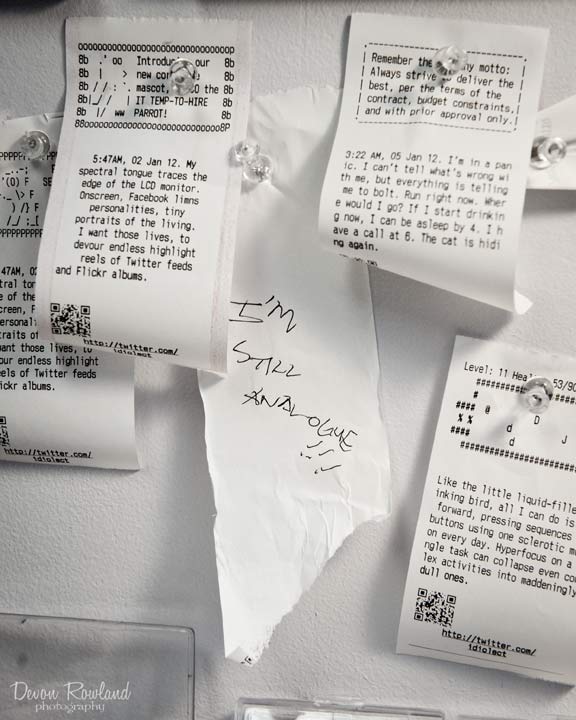 ooooooooooooooooooooooooooooooooop
8b .' oo Introdu our 8b
8b | > new cor 8b
8b / / : `. mascot, the 8b
8b|_/ / | IT TEMP-TO-HIRE 8b
8b |/ ww PARROT! 8b
88oooooooooooooooooooooooooooooo8P
5:47AM, 02 Jan 12. My
spectral tongue traces the
edge of the LCD monitor.
Onscreen, Facebook limns
personalities, tiny
portraits of the living.
I want those lives, to
devour endless highlight
reels of Twitter feeds
and Flickr albums.
http://twitter.com/
idiolect
Remember the ny motto:
Always strive deliver the
best, per the terms of the
contract, budget constraints,
and with prior approval only.
3:22 AM, 05 Jan 12. I'm in a pan
ic. I can't tell what's wrong wi
th me, but everything is telling
me to bolt. Run right now. Wher
e would I go? If I start drinkin
g now, I can be asleep by 4. I h
ave a call at 6. The cat is hidi
ng again.
47AM, 0
tral ton
e of the
creen, F
ersonali
raits of
want those lives, to
our endless highlight
els of Twitter feeds
ickr albums.
http://twitter.com/
idiolect
I'M
STILL
ANALOGUE
!!!
Level: 11 Heal 53/90
################
#
#### @ D
% % d J
#### d
################
Like the little liquid-fille
inking bird, all I can do is
forward, pressing sequences
buttons using one sclerotic m
on every day. Hyperfocus on a
ngle task can collapse even co
lex activities into maddeningly
dull ones.
http://twitter.com/
idiolect
Devon Rowland
photography